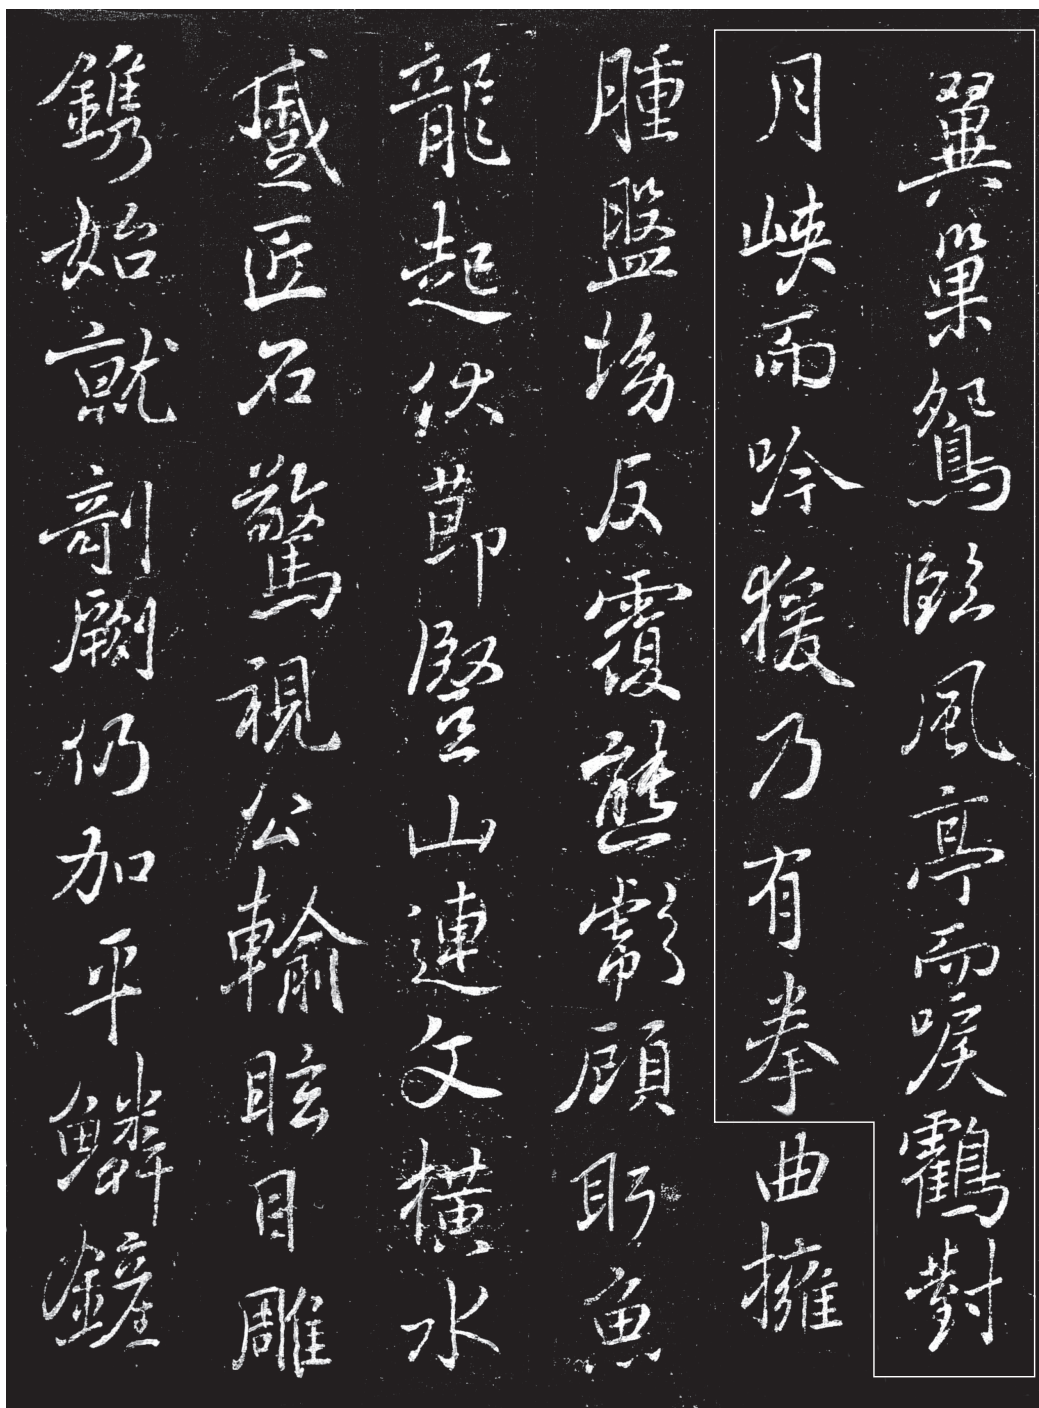 翼巢鴛臨風亭而唳鶴對
月峽而吟猨乃有拳曲擁
腫盤坳反覆熊彪顧盼魚
龍起伏節豎山連文橫水
蹙匠石驚視公輸眩目雕
鐫始就剞劂仍加平鱗鏟